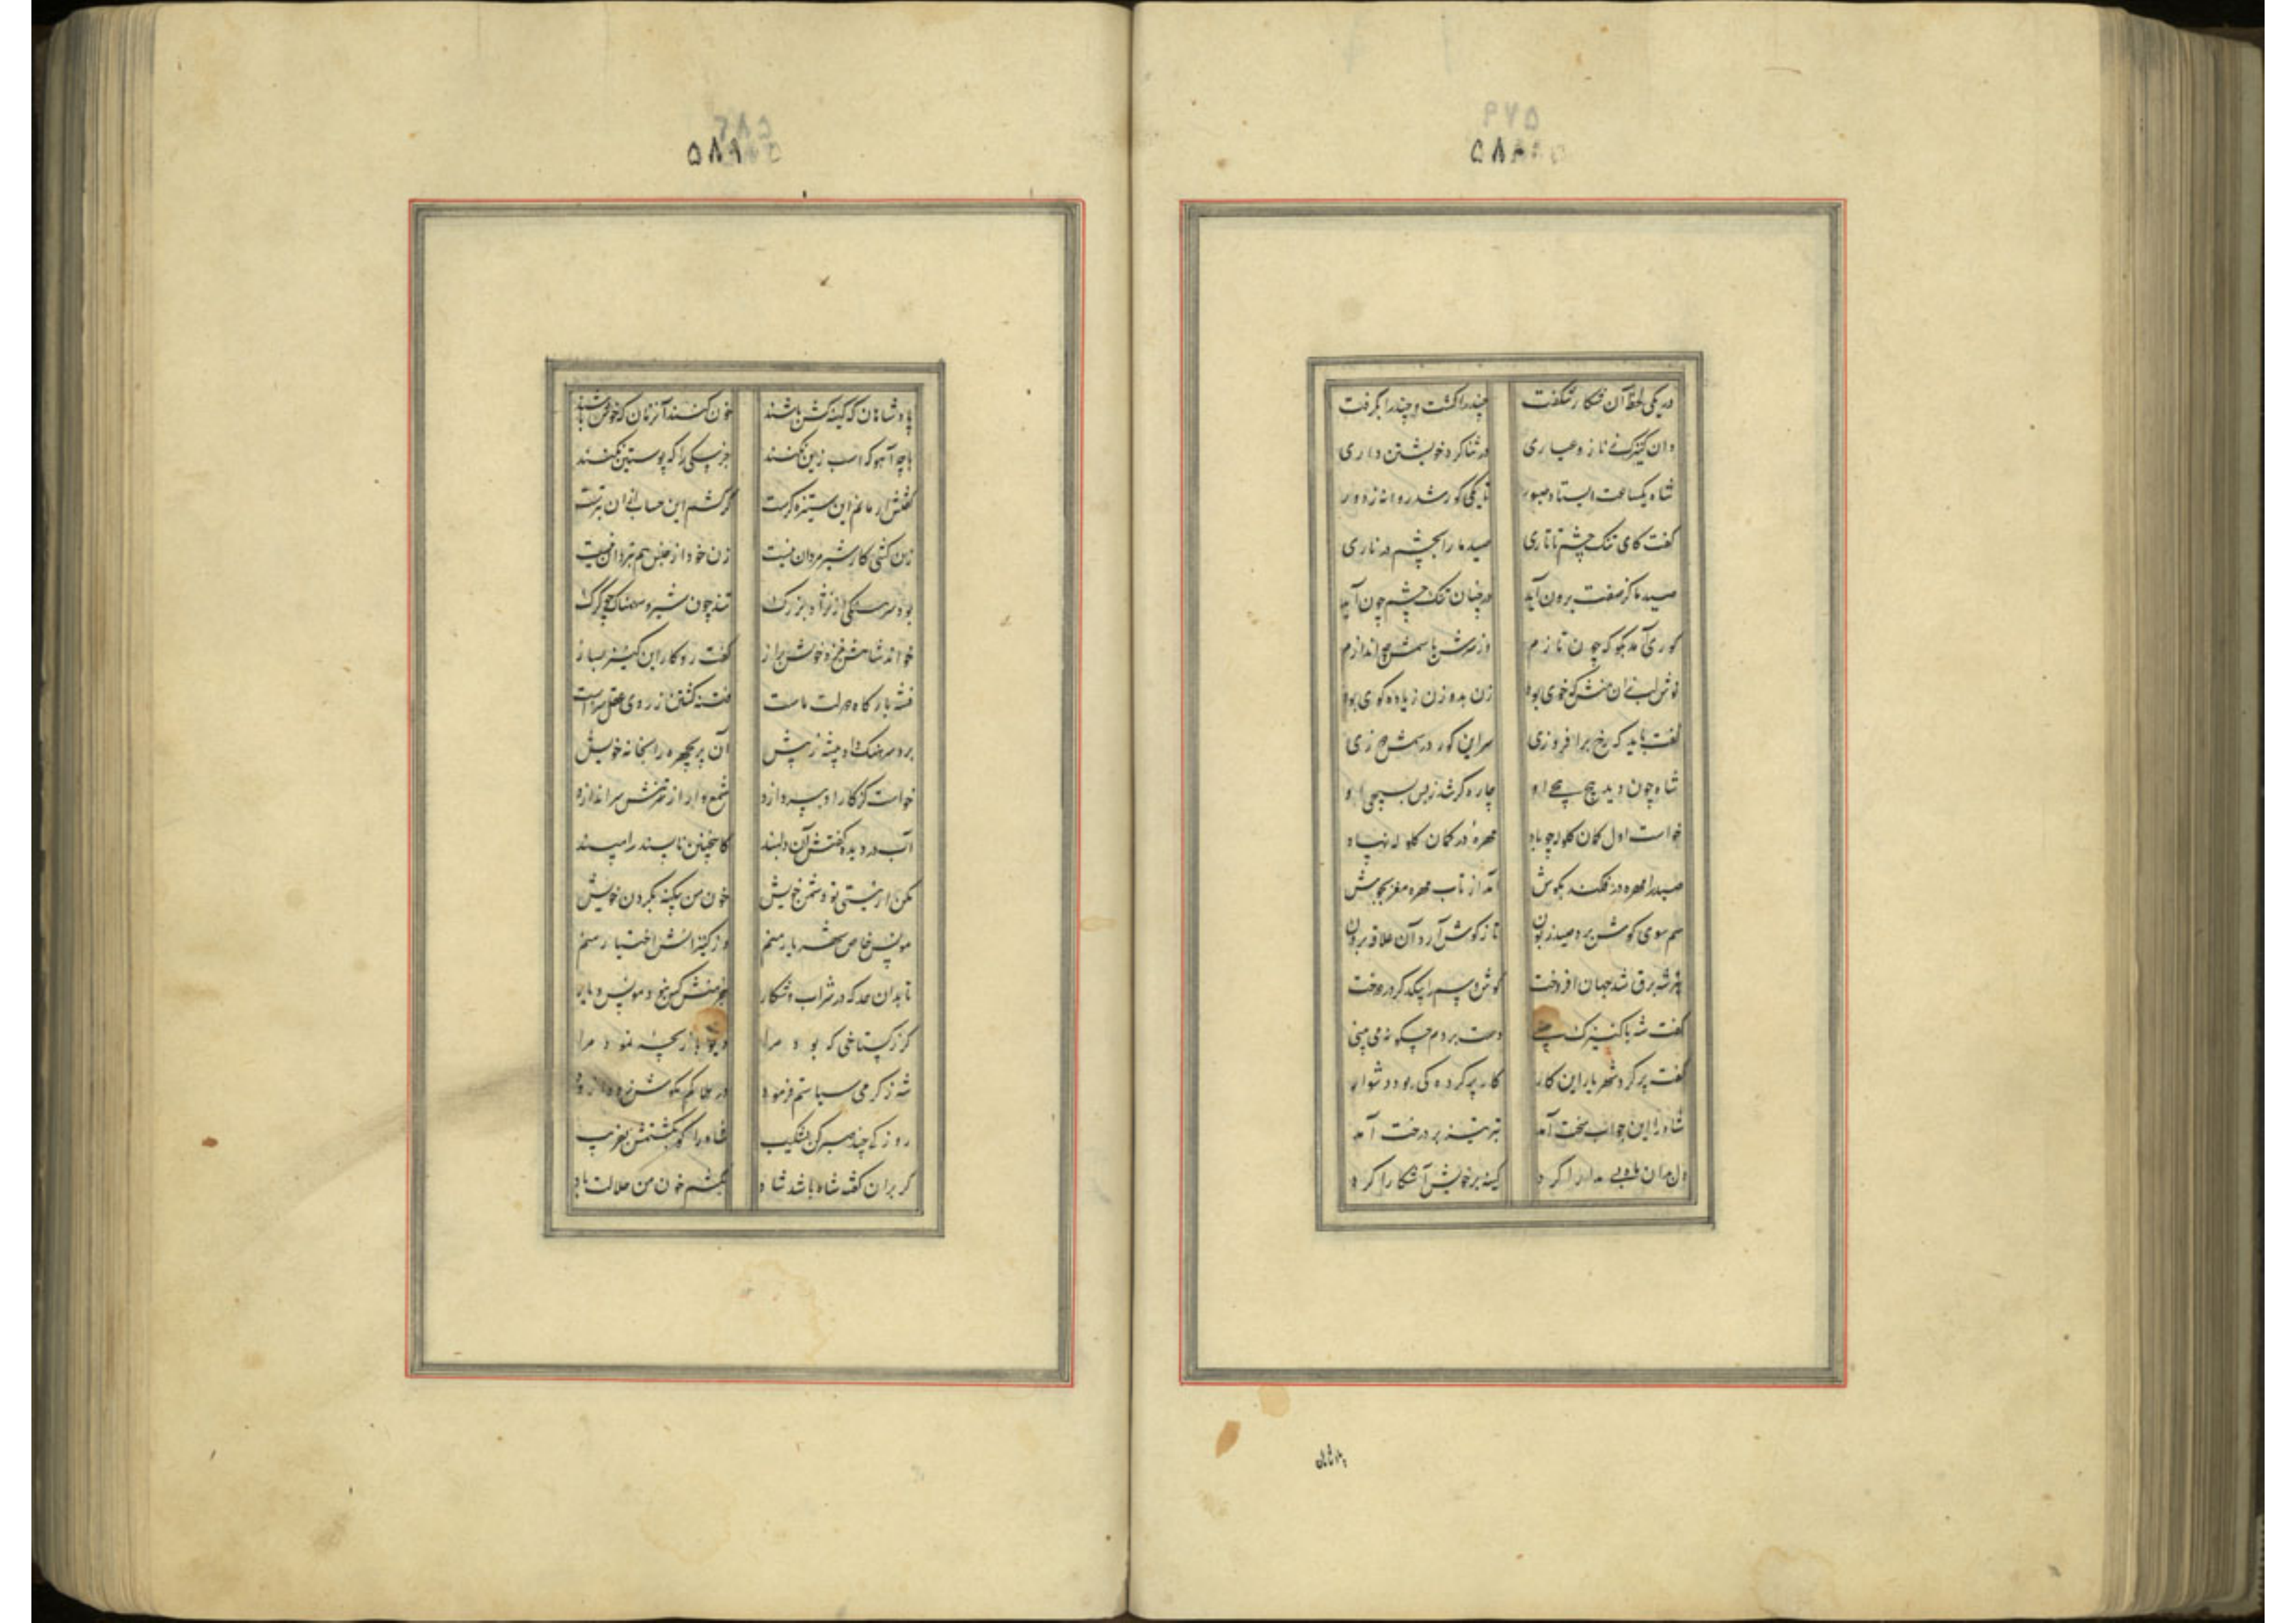 ۵۸۸
در یکی لحظه آن شکار شگفت چند را کشت و چند را بگرفت
وان کنیزک ز ناز و عیاری در ثنا کرد خویشتن داری
شاه یکساعت ایستاد صبور تا یکی گور شد روانه ز دور
گفت کای تنگ چشم تاتاری صید ما را بچشم در ناری
صید ما کز صفت برون آید در چنان تنگ چشم چون آید
گوری آمد بگو که چون تازم وز سرش تا سمش چه اندازم
نوش لب زان منش که خوی بود زن بد و زن زیاده گوی بود
گفت باید که رخ برافروزی سر این گور در سمش دوزی
شاه چون دید پیچ پیچی او چاره گر شد ز بس بسیچی او
خواست اول کمان گلوله چو باد مهره در کمان گلوله نهاد
صید را مهره در فکند بگوش آمد از تاب مهره مغز بجوش
سم سوی گوش برد صید زبون تا ز گوش آرد آن علاقه برون
تیر شه برق شد جهان افروخت گوش و سم را بیکدگر در دوخت
گفت شه با کنیزک چینی دست بردم چگونه می بینی
گفت پر کرد شهریار این کار کار پر کرده کی بود دشوار
شاه را این جواب سخت آمد تبر تیز بر درخت آمد
دل بدان ماه بی مدارا کرد کینه بر خویش آشکارا کرد
پادشاهان
۵۸۹
پادشاهان که کینه کش باشند خون کنند آنزمان که خوش باشند
با چه آهو که اسب زین نکنند جز سگی را که پوستین نکنند
گفتش ار مانم این ستیزه گرست گر کشم این حساب ازان بترست
زن کشی کار شیر مردان نیست زن خود از جنس هم نبردان نیست
بود سرهنگی از نژاد بزرگ تند چون شیر و سهمناک چو گرگ
خواند شاهش بنزد خویش براز گفت رو کار این کنیز بساز
فتنه بارگاه دولت ماست فتنه کشتن ز روی عقل رواست
برد سرهنگ داد پیشه ز پیش آن پریچهره را بخانه خویش
خواست کز کار او بپردازد شمع وار از تنش سر اندازد
آب در دیده گفتش آن دلبند کاینچنین ناپسند را مپسند
مکن ار نیستی تو دشمن خویش خون من بیگنه بگردن خویش
مونس خاص شهریار منم وز کنیزانش اختیار منم
تا بدان حد که در شراب و شکار جز منش کس نبود مونس و یار
گر ز گستاخی که بود مرا دیو بازیچه نمود مرا
شه ز گرمی سیاستم فرمود در هلاکم مکوش زودا زود
روز کی چند صبر کن بشکیب شاه را گو بکشتمش بفریب
گر بران گفته شاه باشد شاد بکشم خون من حلالت باد